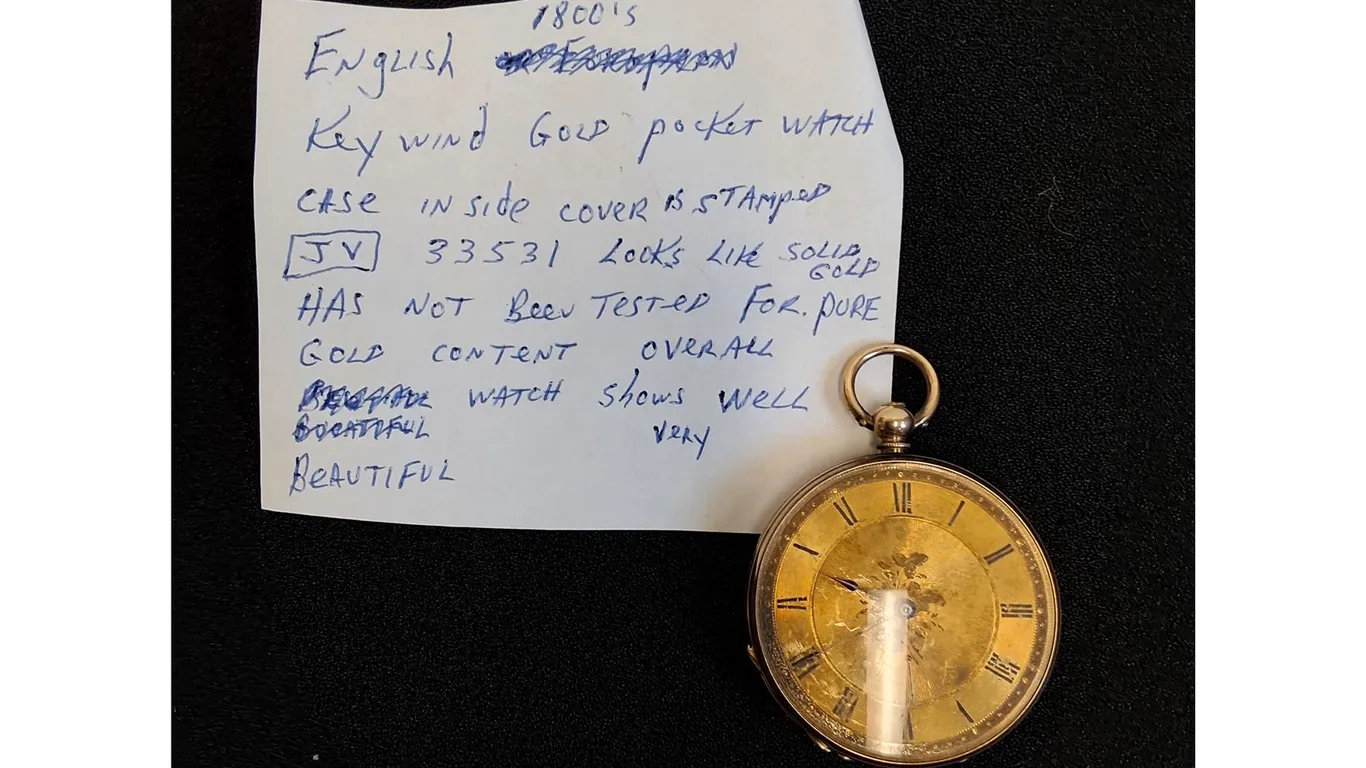 1800's
English
Key wind GOLD pocket WATCH
CASE INside COVER is STAMPED
JV 33531 LOOKS LIKE SOLID
GOLD
HAS NOT Been TesTeD FOR. PURE
GOLD CONTENT OVERALL
WATCH Shows WELL
very
BeAUTIFUL
XII
I
II
III
IIII
V
VI
VII
VIII
IX
X
XI